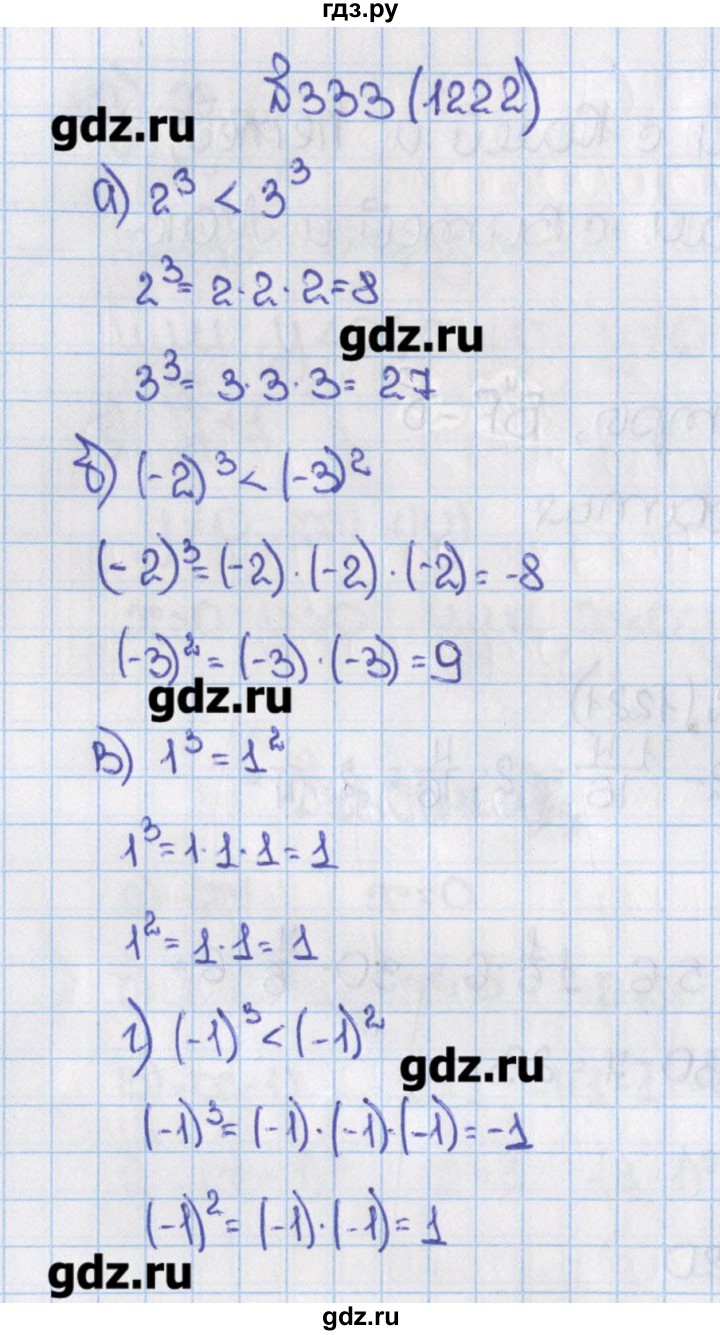 гдз.ру
№333 (1222)
gdz.ru
а) 2³ < 3³
2³ = 2·2·2=8
gdz.ru
3³ = 3·3·3= 27
б) (-2)³ < (-3)²
(-2)³ = (-2)·(-2)·(-2) = -8
(-3)² = (-3)·(-3) = 9
gdz.ru
в) 1³ = 1²
1³ = 1·1·1 = 1
1² = 1·1 = 1
г) (-1)³ < (-1)²
gdz.ru
(-1)³ = (-1)·(-1)·(-1) = -1
(-1)² = (-1)·(-1) = 1
gdz.ru
gdz.ru